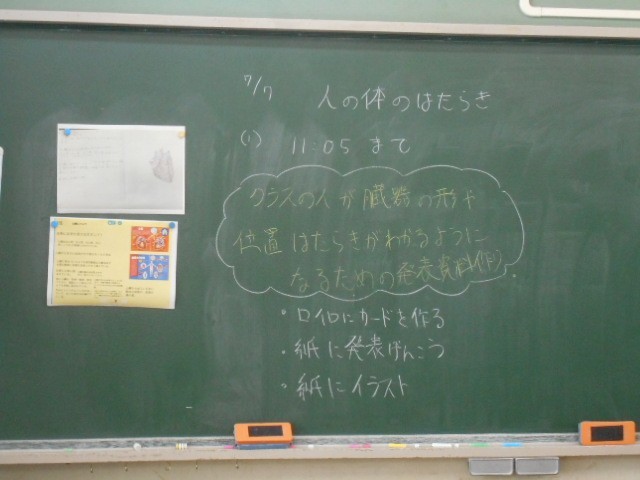 7/7 人の体のはたらき
(1) 11:05 まで
クラスの人が臓器の形や
位置はたらきがわかるように
なるための発表資料作り。
・ロイロにカードを作る
・紙に発表げんこう
・紙にイラスト